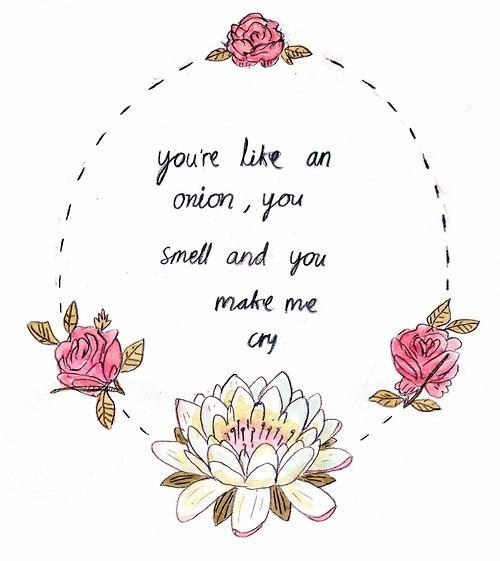 you're like an
onion, you
smell and you
make me
cry